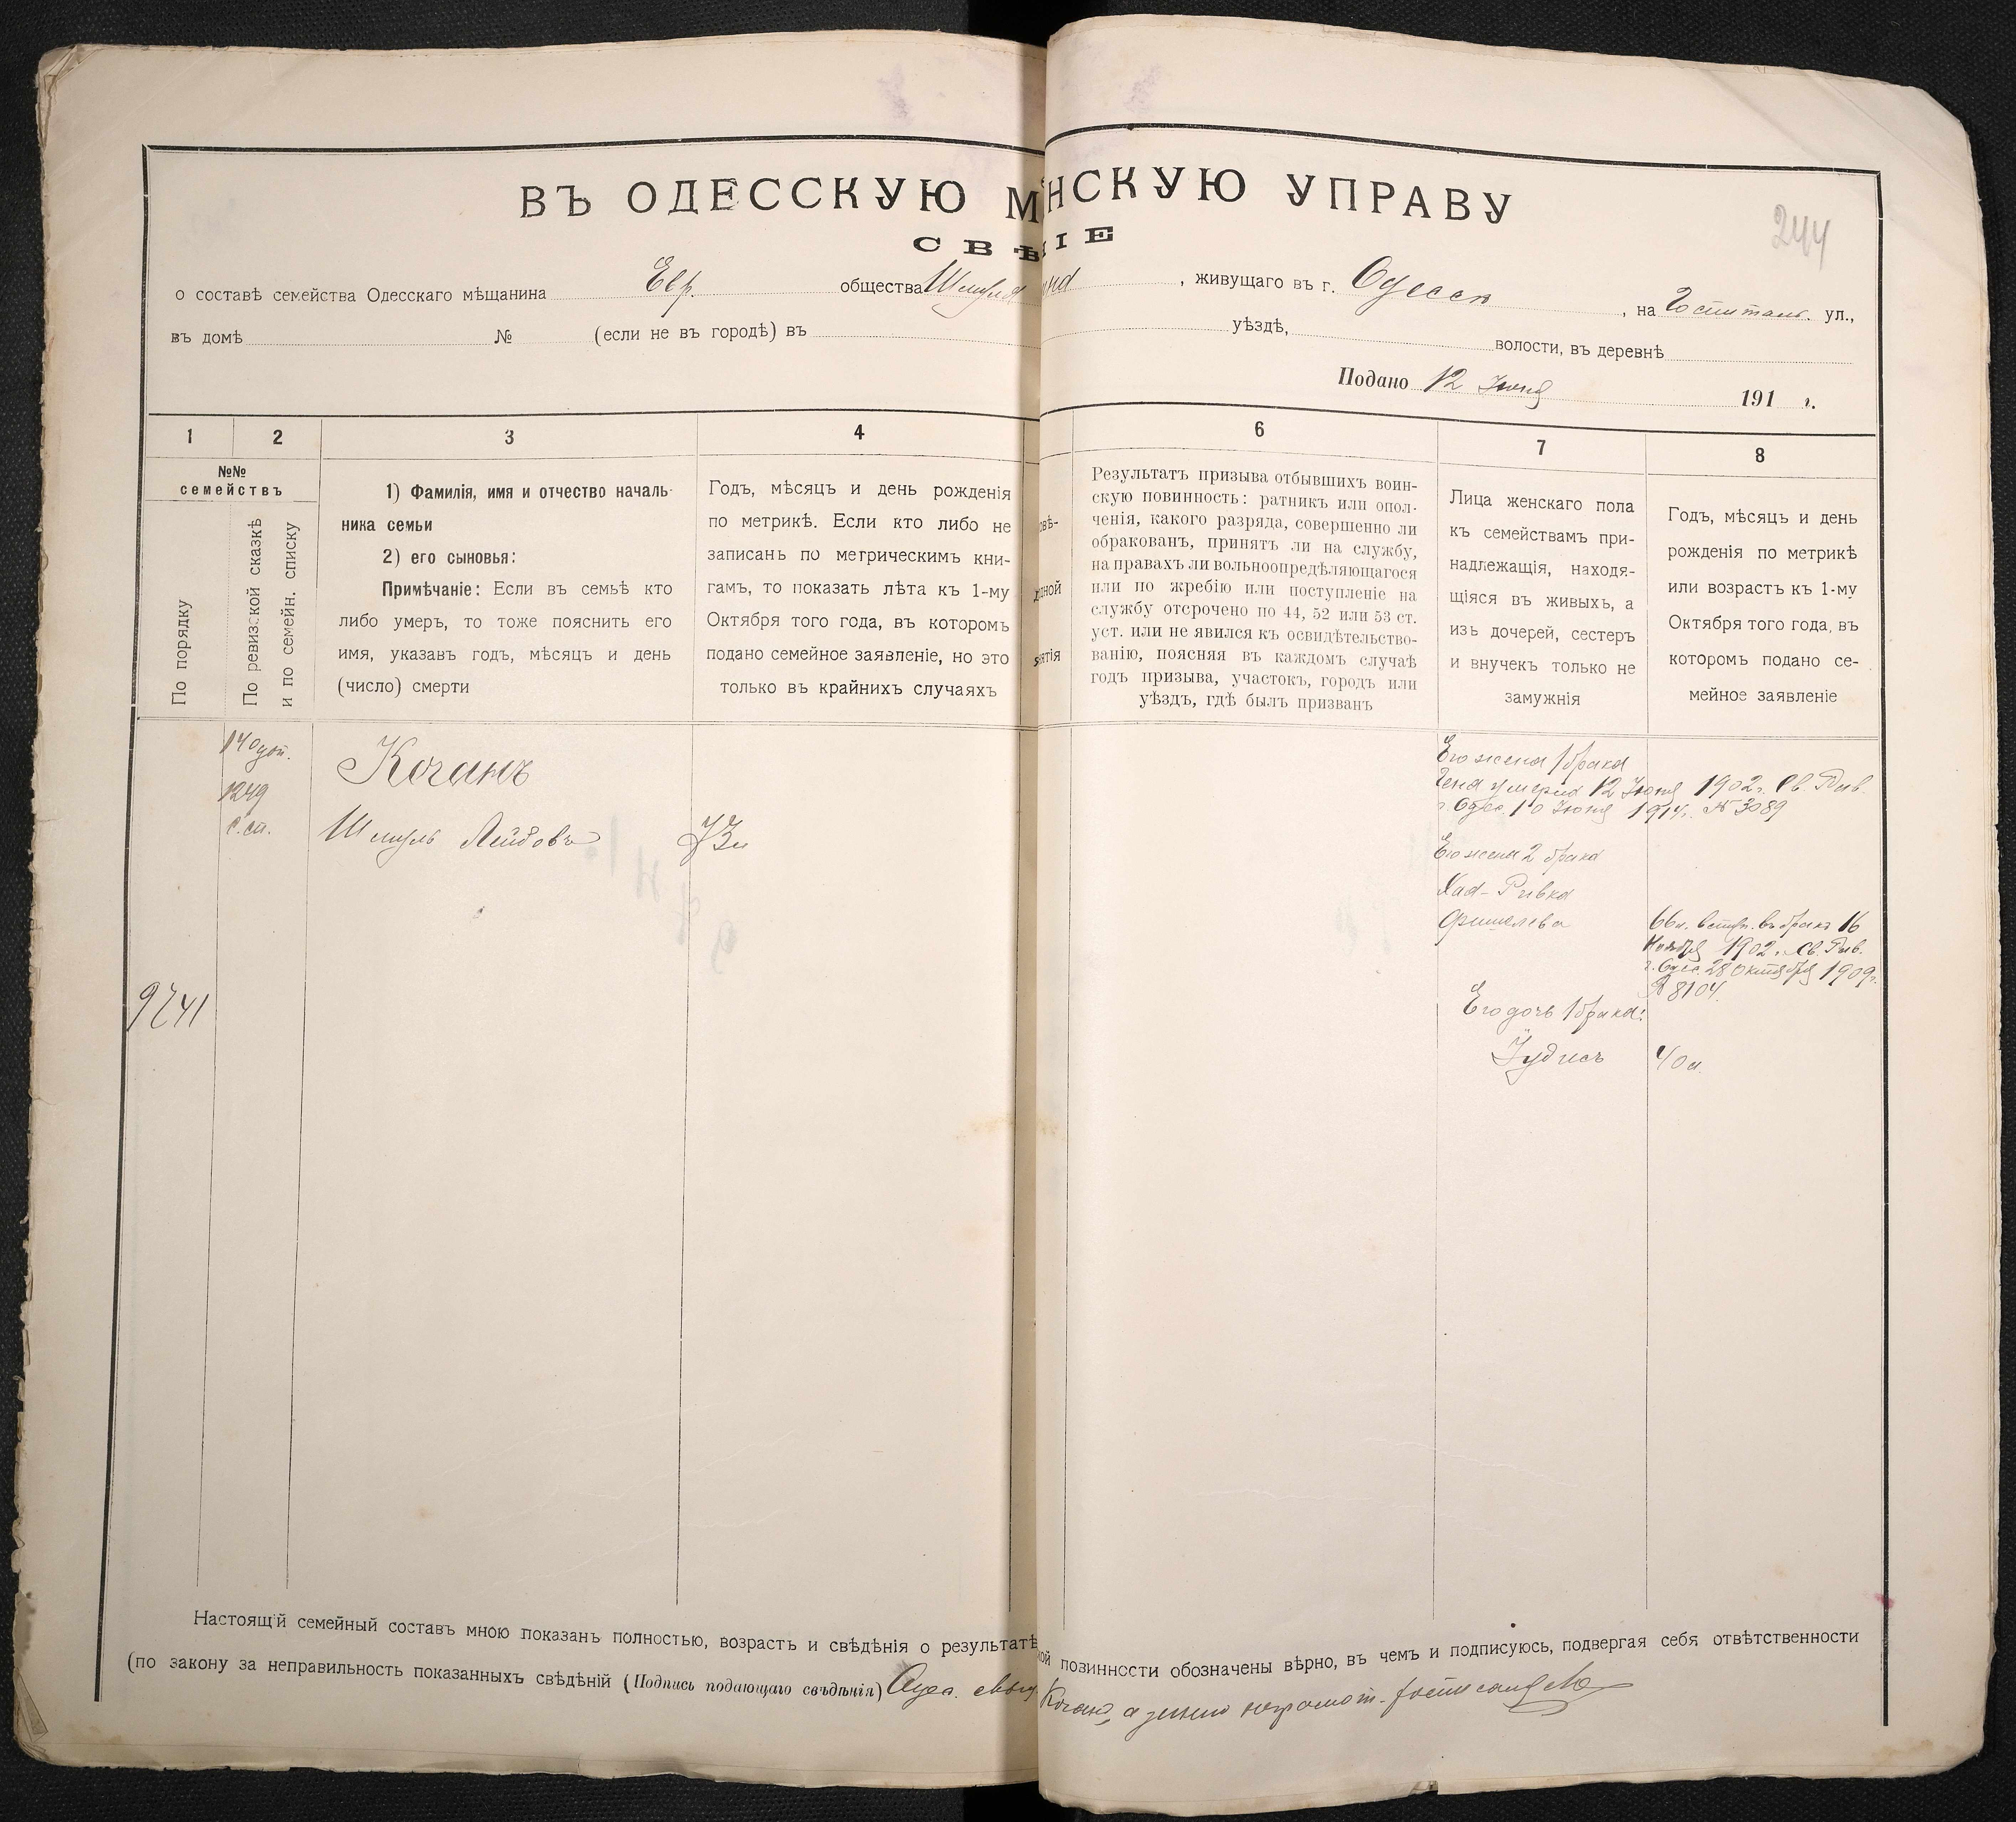 ВЪ ОДЕССКУЮ М НСКУЮ УПРАВУ
СВѢ ІЕ
244
о составѣ семейства Одесскаго мѣщанина Евр. общества Шмуля , живущаго въ г. Одессѣ , на Госпиталь. ул.,
въ домѣ № (если не въ городѣ) въ уѣздѣ, волости, въ деревнѣ
Подано 12 Іюня 191 г.
1 2 3 4 6 7 8
№№
семействъ
По порядку
По ревизской сказкѣ
и по семейн. списку
1) Фамилія, имя и отчество началь-
ника семьи
2) его сыновья:
Примѣчаніе: Если въ семьѣ кто
либо умеръ, то тоже пояснить его
имя, указавъ годъ, мѣсяцъ и день
(число) смерти
Годъ, мѣсяцъ и день рожденія
по метрикѣ. Если кто либо не
записанъ по метрическимъ кни-
гамъ, то показать лѣта къ 1-му
Октября того года, въ которомъ
подано семейное заявленіе, но это
только въ крайнихъ случаяхъ
овѣ-
дной
ятія
Результатъ призыва отбывшихъ воин-
скую повинность: ратникъ или опол-
ченія, какого разряда, совершенно ли
обракованъ, принятъ ли на службу,
на правахъ ли вольноопредѣляющагося
или по жребію или поступленіе на
службу отсрочено по 44, 52 или 53 ст.
уст. или не явился къ освидѣтельство-
ванію, поясняя въ каждомъ случаѣ
годъ призыва, участокъ, городъ или
уѣздъ, гдѣ былъ призванъ
Лица женскаго пола
къ семействамъ при-
надлежащія, находя-
щіяся въ живыхъ, а
изъ дочерей, сестеръ
и внучекъ только не
замужнія
Годъ, мѣсяцъ и день
рожденія по метрикѣ
или возрастъ къ 1-му
Октября того года, въ
которомъ подано се-
мейное заявленіе
140 доп.
1249
с. сп.
9241
Коганъ
Шмуль Лейбовъ
73 л
Его жена 1 брака
умерла 12 Іюня 1902 г. Св. Рав.
г. Одес. 10 Іюня 1914 г. № 3089
Его жена 2 брака
Хая-Ривка
Фишелева
66 л. вступ. въ бракъ 16
Ноября 1902 г. Св. Рав.
г. Одес. 28 Октября 1909 г.
№ 8104.
Его дочь 1 брака:
Іудись
40 л.
Настоящій семейный составъ мною показанъ полностью, возрастъ и свѣдѣнія о результатѣ ой повинности обозначены вѣрно, въ чемъ и подписуюсь, подвергая себя отвѣтственности
(по закону за неправильность показанныхъ свѣдѣній (Подпись подающаго свѣдѣнія) Одес. Коганъ, а за неграмот. росписался